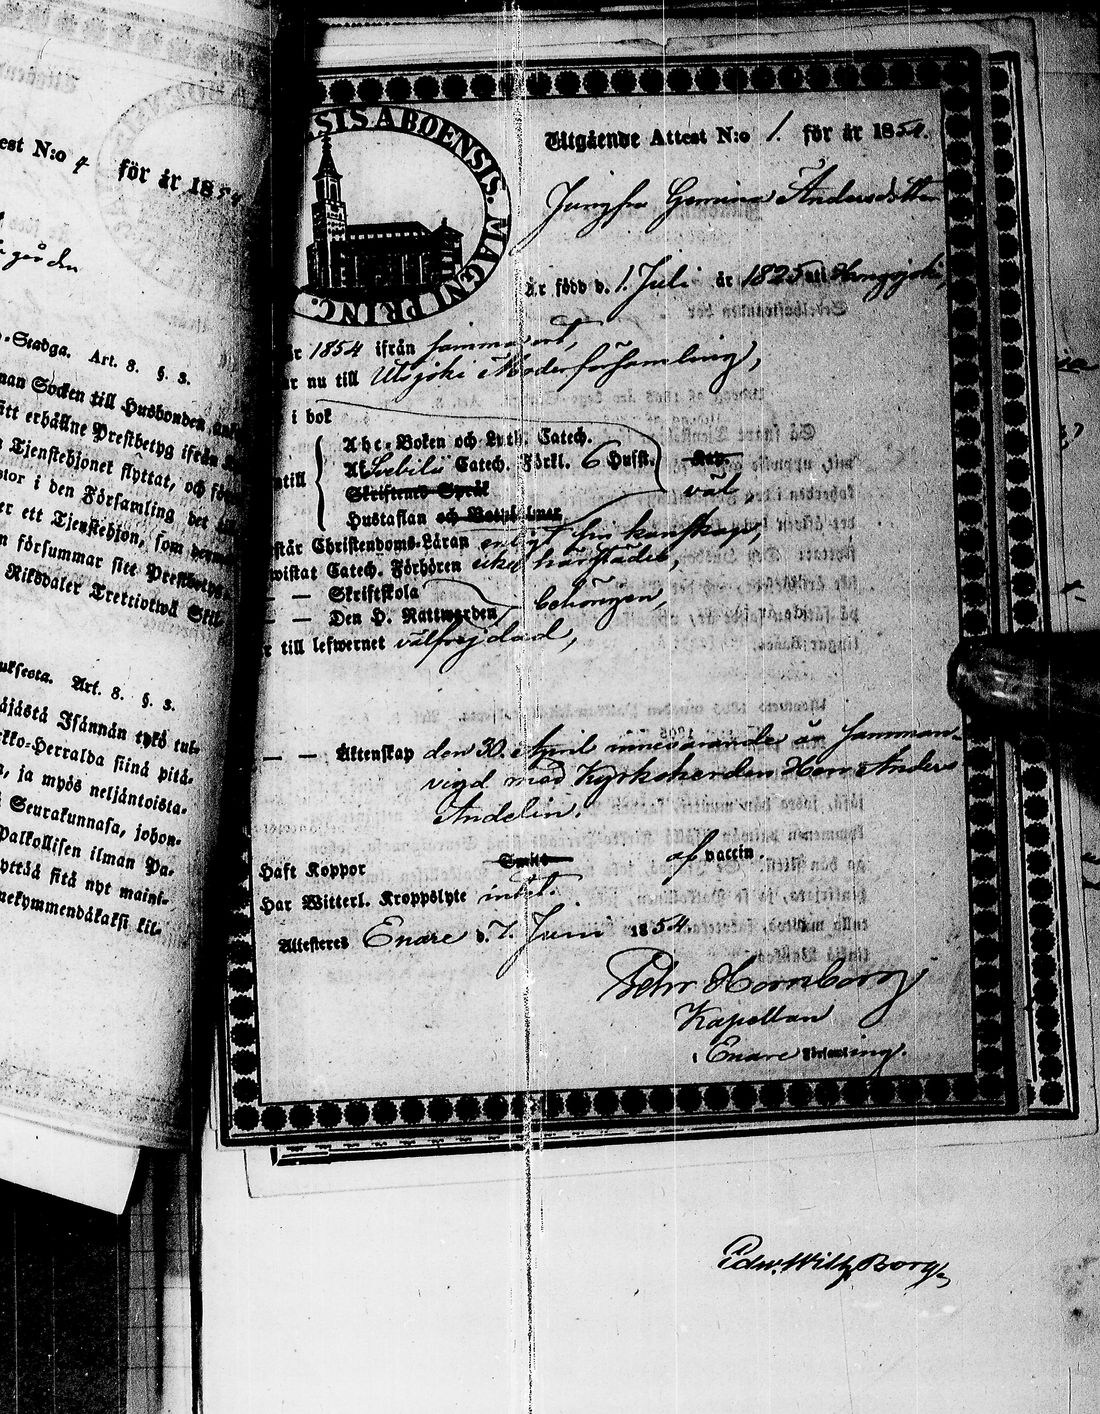 est N:o 4 för år 1854
gården
Stadga. Art. 8. §. 3.
man Socken till Husbonden
ått erhållne Prestbetyg ifrån
Tjenstehjonet flyttat, och
stor i den Församling det
er ett Tjenstehjon, som
n försummar sitt Prestbetyg
Riksdaler Trettiotwå Skil-
uksesta. Art. 8. §. 3.
äjästä Isännän tykö tul-
kko-Herralda siinä pitä-
n, ja myös neljäntoista-
Seurakunnasa, johon-
Palkollisen ilman Pa-
yttää sitä nyt maini-
nekymmendäkaksi kil-
SIS ABOENSIS. MAGNI PRINC.
Utgående Attest N:o 1. för år 1854.
Jungfru Gemina Andersdotter
är född d. 1. Juli år 1825 uti
år 1854 ifrån samma ort,
ar nu till Utsjoki Moderförsamling,
i bok
Abc-Boken och Luth. Catech.
Af Svebilii Catech. Förkl. 6 Hufst.
ntill
Skriftens Språk väl
Hustaflan och
står Christendoms-Läran enligt sin kunskap,
wistat Catech. Förhören likes härstädes,
— — Skriftskola
— — Den H. Nattwarden behörigen,
r till lefwernet välfrejdad,
— — Äktenskap den 30. April innevarande år samman-
vigd med Kyrkoherden Herr Anders
Andelin.
Haft Koppor Smitt af vaccin.
Har Witterl. Kroppslyte intet.
Attesteres Enare d. 7. Juni 1854.
Pehr Hornborg
Kapellan
i Enare Församling.
Edw. Wilh. Borg